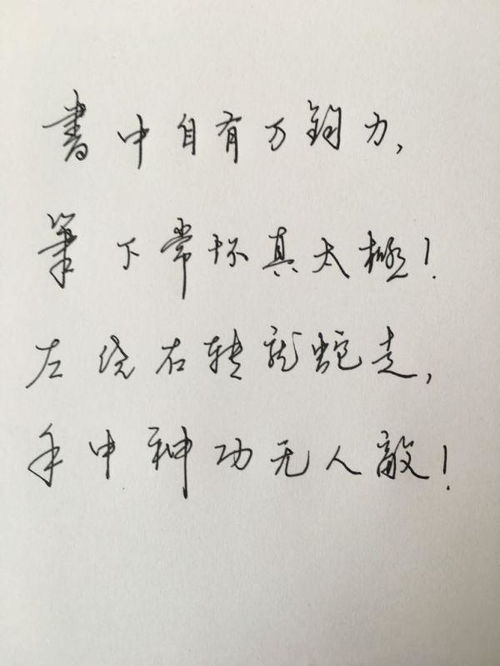 書中自有万鈞力，
筆下常怀真太極！
左绕右转龙蛇走，
手中神功无人敵！